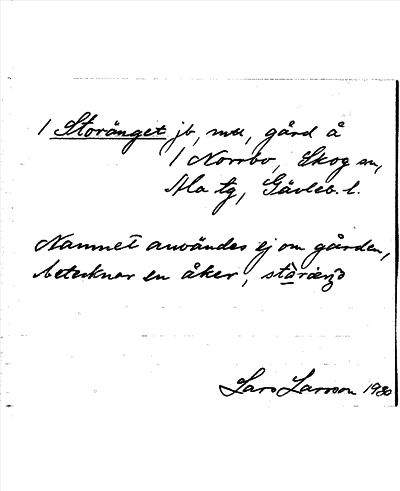 1 Storänget jb, mu, gård å
1 Norrbo, Skog sn,
Ala tg, Gävleb. l.
Namnet användes ej om gården,
betecknar en åker,
Lars Larsson 1930